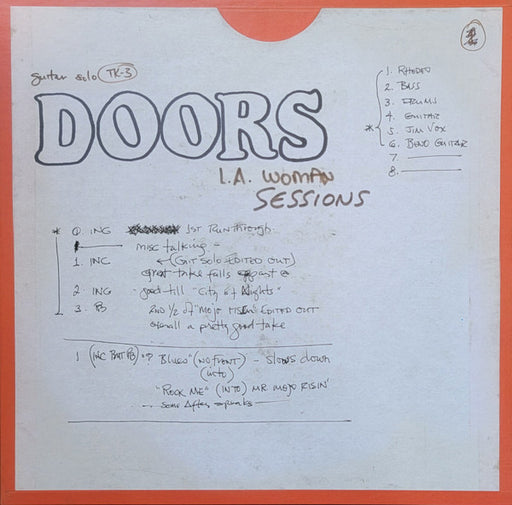 guitar solo TK-3
DOORS
L.A. WOMAN
SESSIONS
1. RHODES
2. BASS
3. DRUMS
4. GUITAR
* 5. JIM VOX
6. BEND GUITAR
7.
8.
* 0. INC 1ST Run through
misc talking -
1. INC (GUIT SOLO EDITED OUT)
great take falls apart @
2. INC - good till "City of Nights"
3. PB 2ND 1/2 of "MOJO RISEN" EDITED OUT
overall a pretty good take
1 (INC BUT PB) "Blues" (NO FRONT) - Slows down
(into)
"ROCK ME" (INTO) MR MOJO RISIN'
- some After